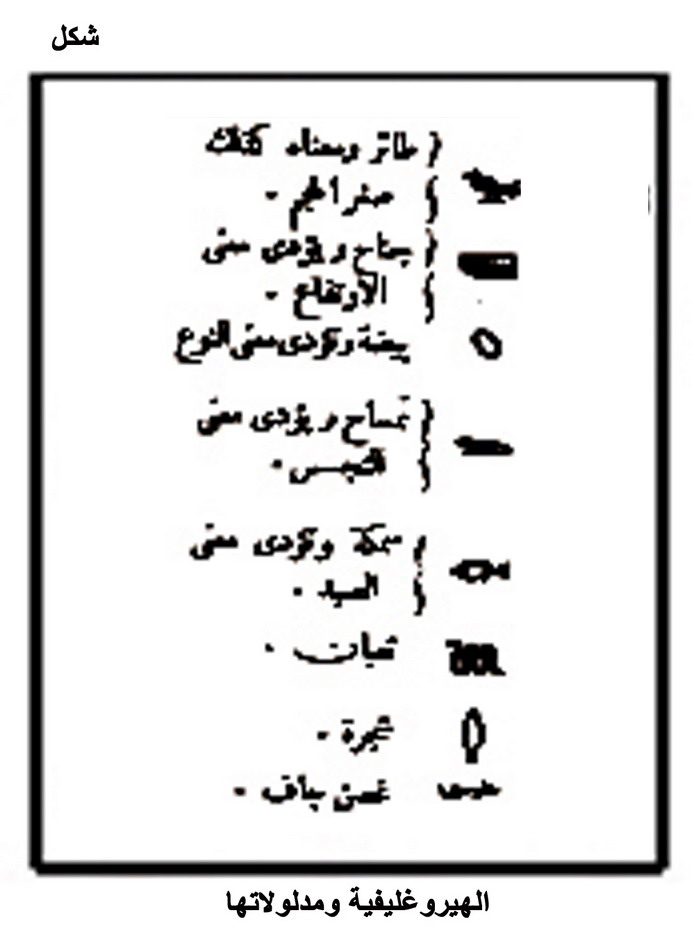 شكل
طائر ومعناه كذلك
صغر الحجم .
جناح ويؤدى معنى
الارتفاع .
بيضة وتؤدى معنى النوع
تمساح ويؤدى معنى
سمكة وتؤدى معنى
الصيد .
نبات .
شجرة .
غصن جاف .
الهيروغليفية ومدلولاتها